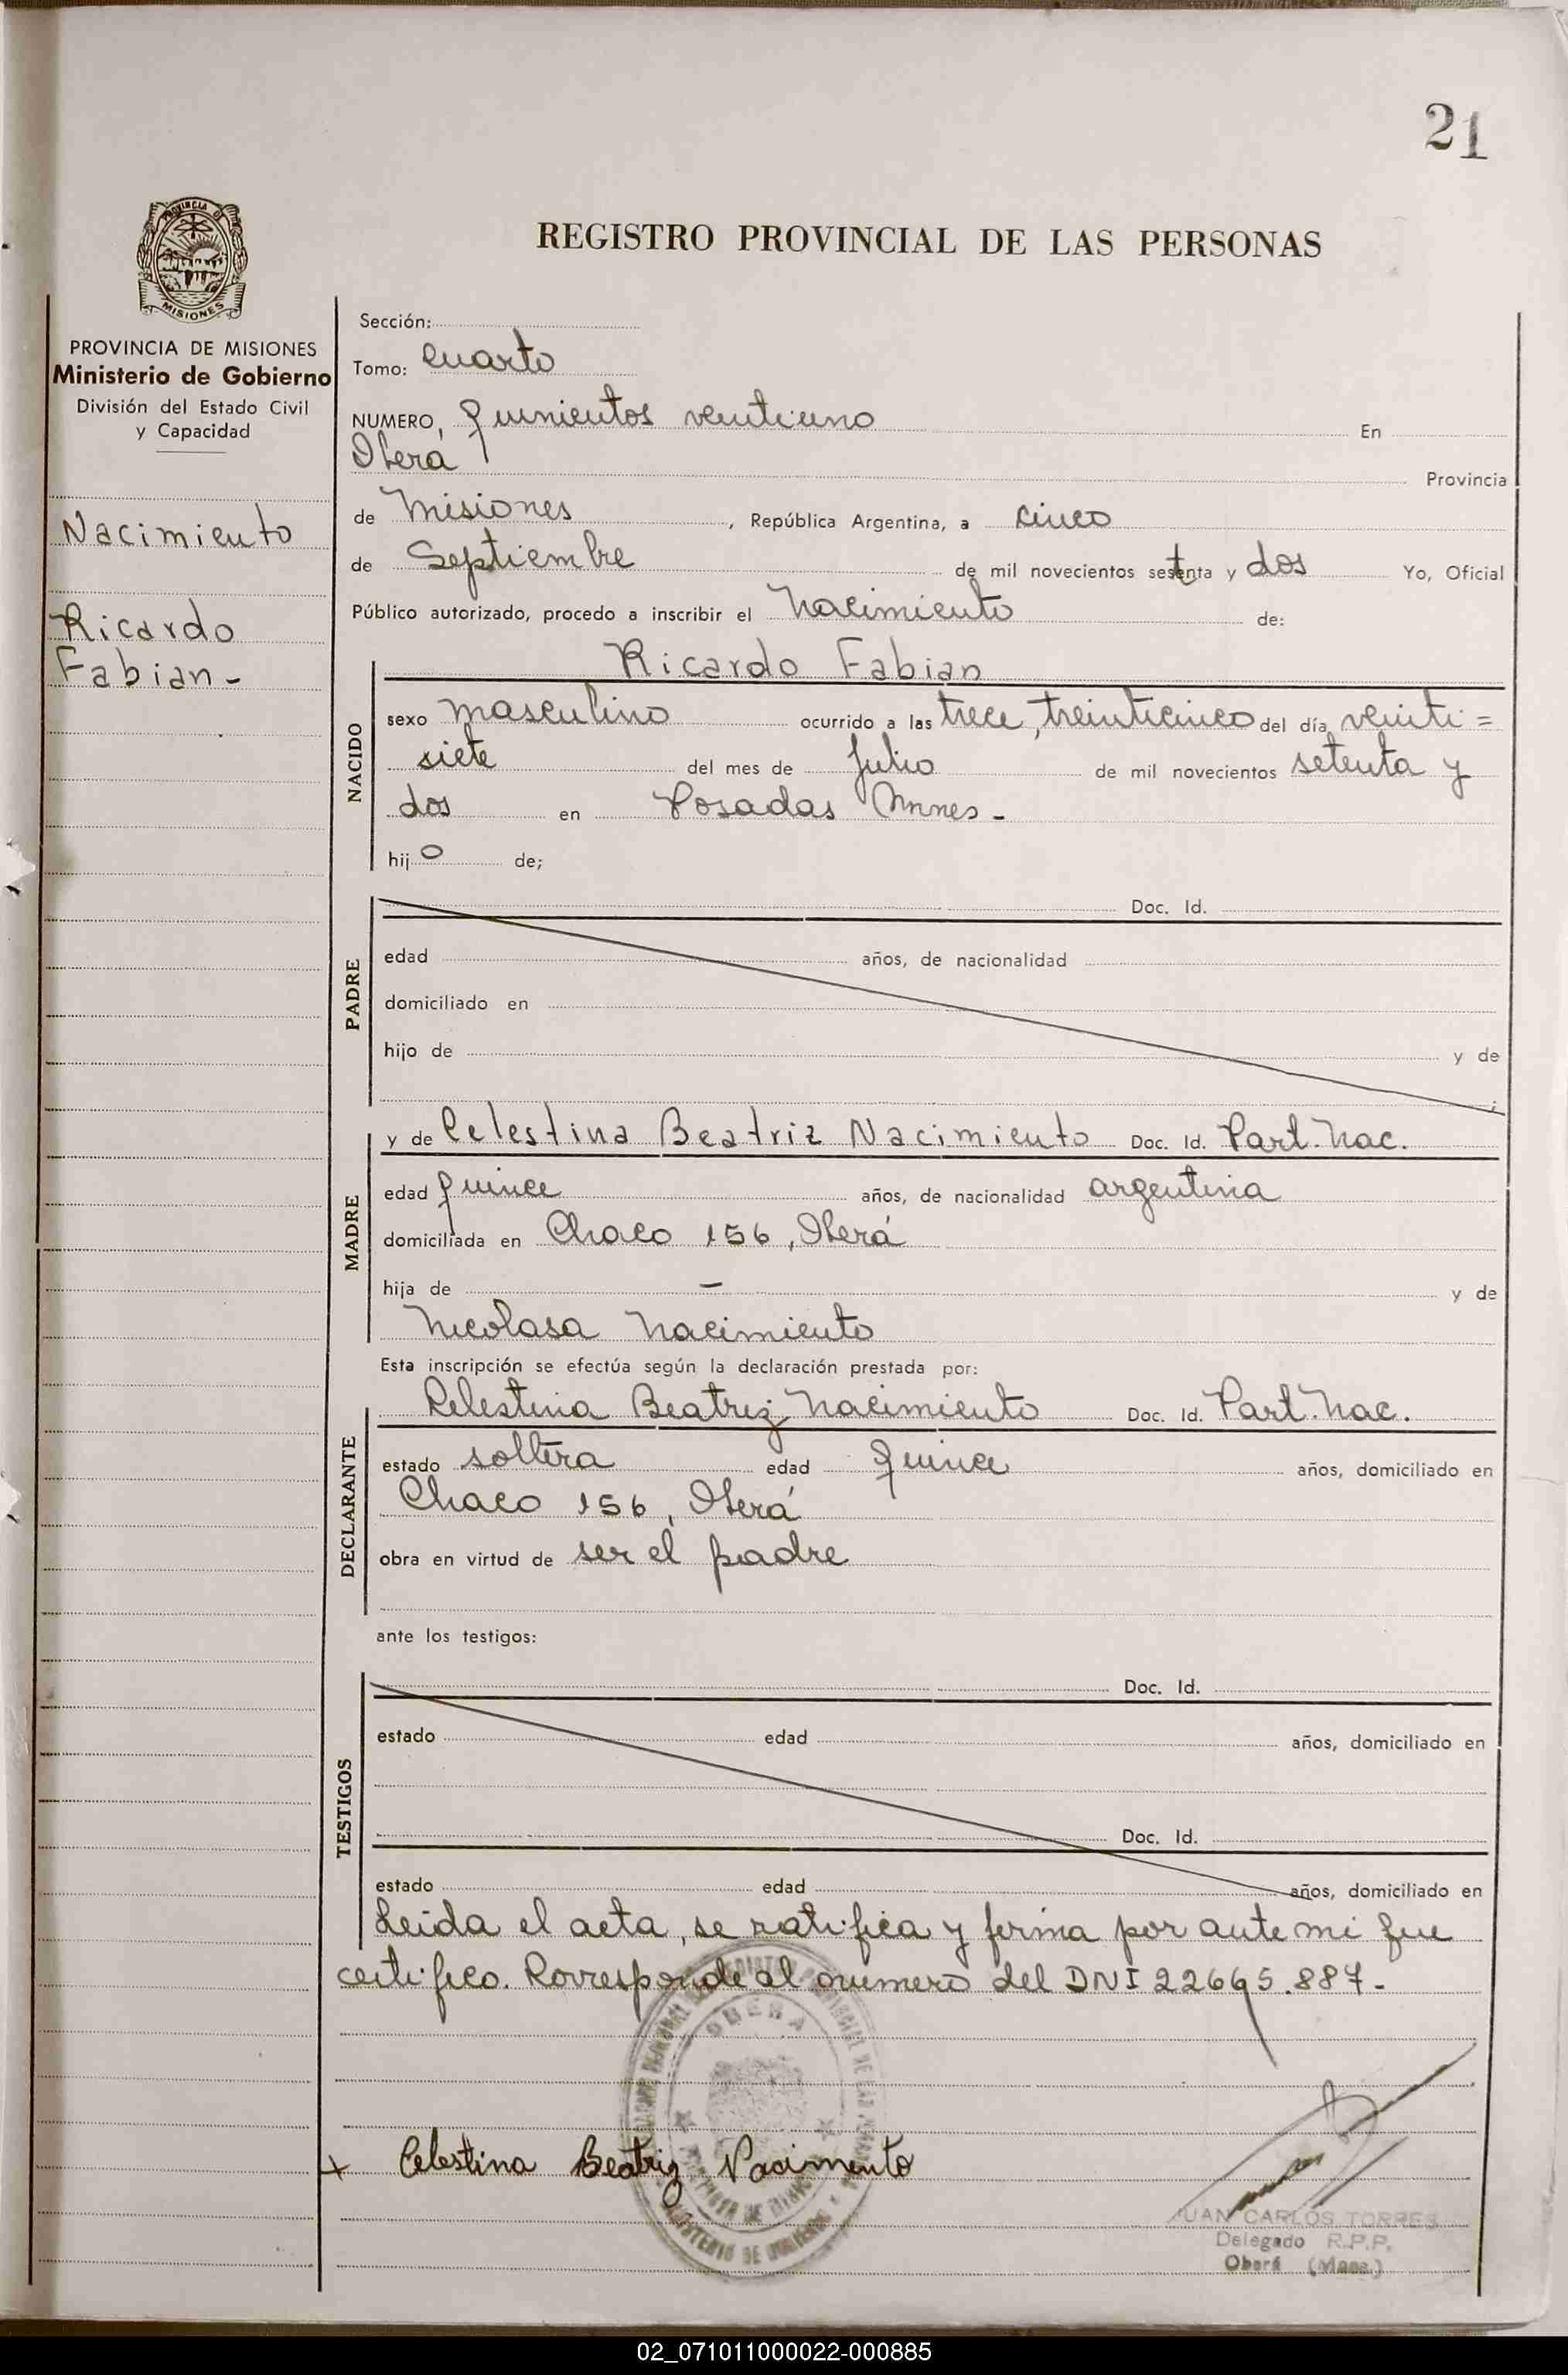 21
PROVINCIA DE
MISIONES
REGISTRO PROVINCIAL DE LAS PERSONAS
PROVINCIA DE MISIONES
Ministerio de Gobierno
División del Estado Civil
y Capacidad
Nacimiento
Ricardo
Fabian-
Sección:
Tomo: Cuarto
NUMERO, quinientos veintiuno En
Oberá Provincia
de Misiones, República Argentina, a cinco
de Septiembre de mil novecientos setenta y dos Yo, Oficial
Público autorizado, procedo a inscribir el Nacimiento de:
Ricardo Fabian
NACIDO
sexo masculino ocurrido a las trece, treinticinco del día veinti=
siete del mes de Julio de mil novecientos setenta y
dos en Posadas Mnes-
hijo de;
PADRE
Doc. Id.
edad años, de nacionalidad
domiciliado en
hijo de y de
MADRE
y de Celestina Beatriz Nacimiento Doc. Id. Part. Nac.
edad quince años, de nacionalidad argentina
domiciliada en Chaco 156, Oberá
hija de - y de
Nicolasa Nacimiento
Esta inscripción se efectúa según la declaración prestada por:
DECLARANTE
Celestina Beatriz Nacimiento Doc. Id. Part. Nac.
estado soltera edad quince años, domiciliado en
Chaco 156, Oberá
obra en virtud de ser el padre
ante los testigos:
TESTIGOS
Doc. Id.
estado edad años, domiciliado en
Doc. Id.
estado edad años, domiciliado en
Leida el acta, se ratifica y firma por ante mi que
certifico. Corresponde al numero del DNI 22695.887-
OBERA
x Celestina Beatriz Nacimento
JUAN CARLOS TORRES
Delegado R.P.P.
Oberá (Mnes.)
02_071011000022-000885